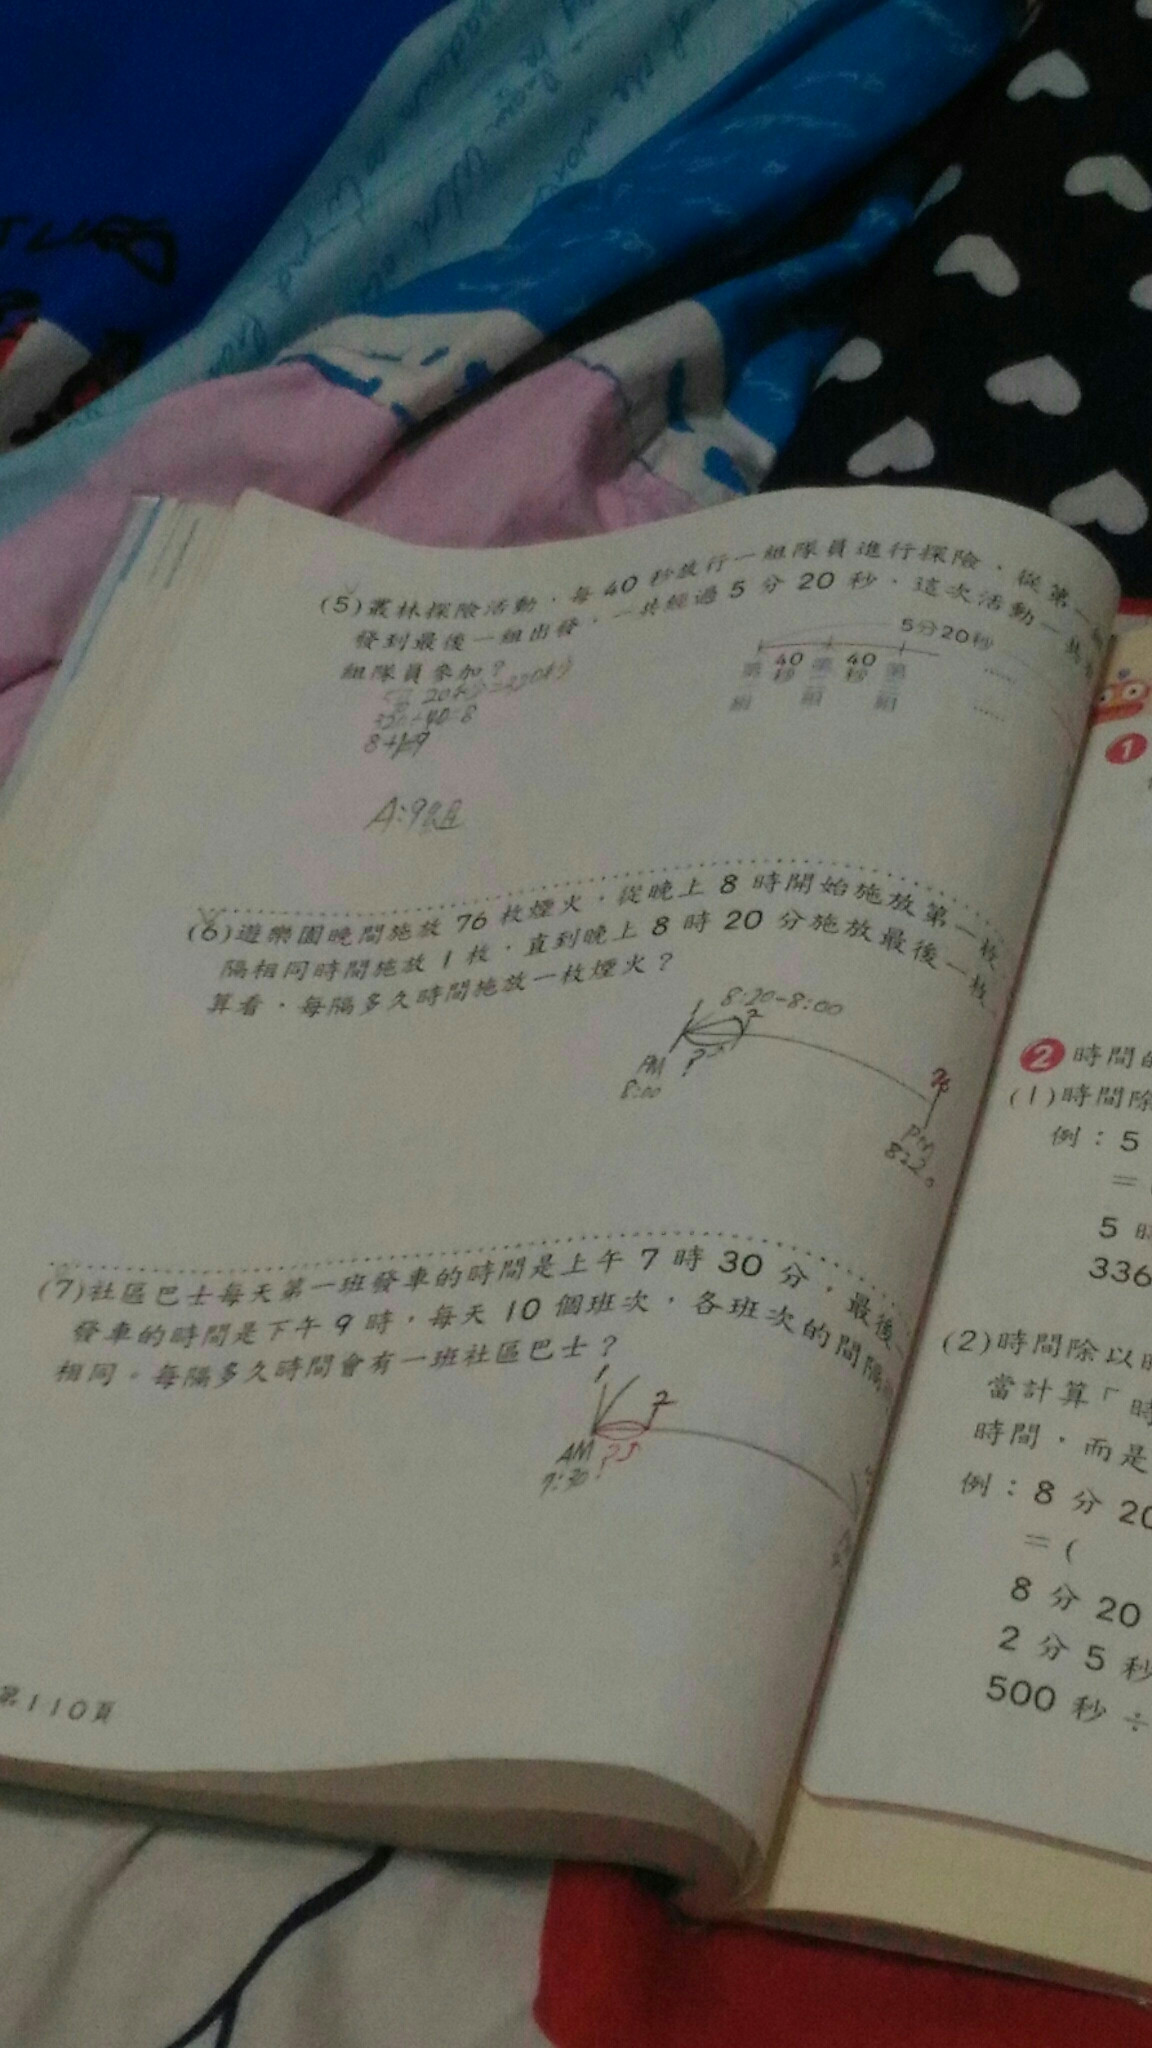 (5)叢林探險活動，每40秒放行一組隊員進行探險，從第一
發到最後一組出發，一共經過5分20秒，這次活動一共
組隊員參加？
5分20秒
40秒 40秒
第 第 第
組 組 組
320÷40=8
8+1=9
A:9組
(6)遊樂園晚間施放76枚煙火，從晚上8時開始施放第一枚
隔相同時間施放1枚，直到晚上8時20分施放最後一枚
算看，每隔多久時間施放一枚煙火？
8:20-8:00
1 2
?
8:00
76
PM
8:20
(7)社區巴士每天第一班發車的時間是上午7時30分，最後
發車的時間是下午9時，每天10個班次，各班次的間隔
相同。每隔多久時間會有一班社區巴士？
1 2
AM ?
7:30
第110頁
1
2 時間
(1)時間除
例：5
=
5 時
336
(2)時間除以時
當計算「時
時間，而是
例：8分20
=(
8分20
2分5秒
500秒÷